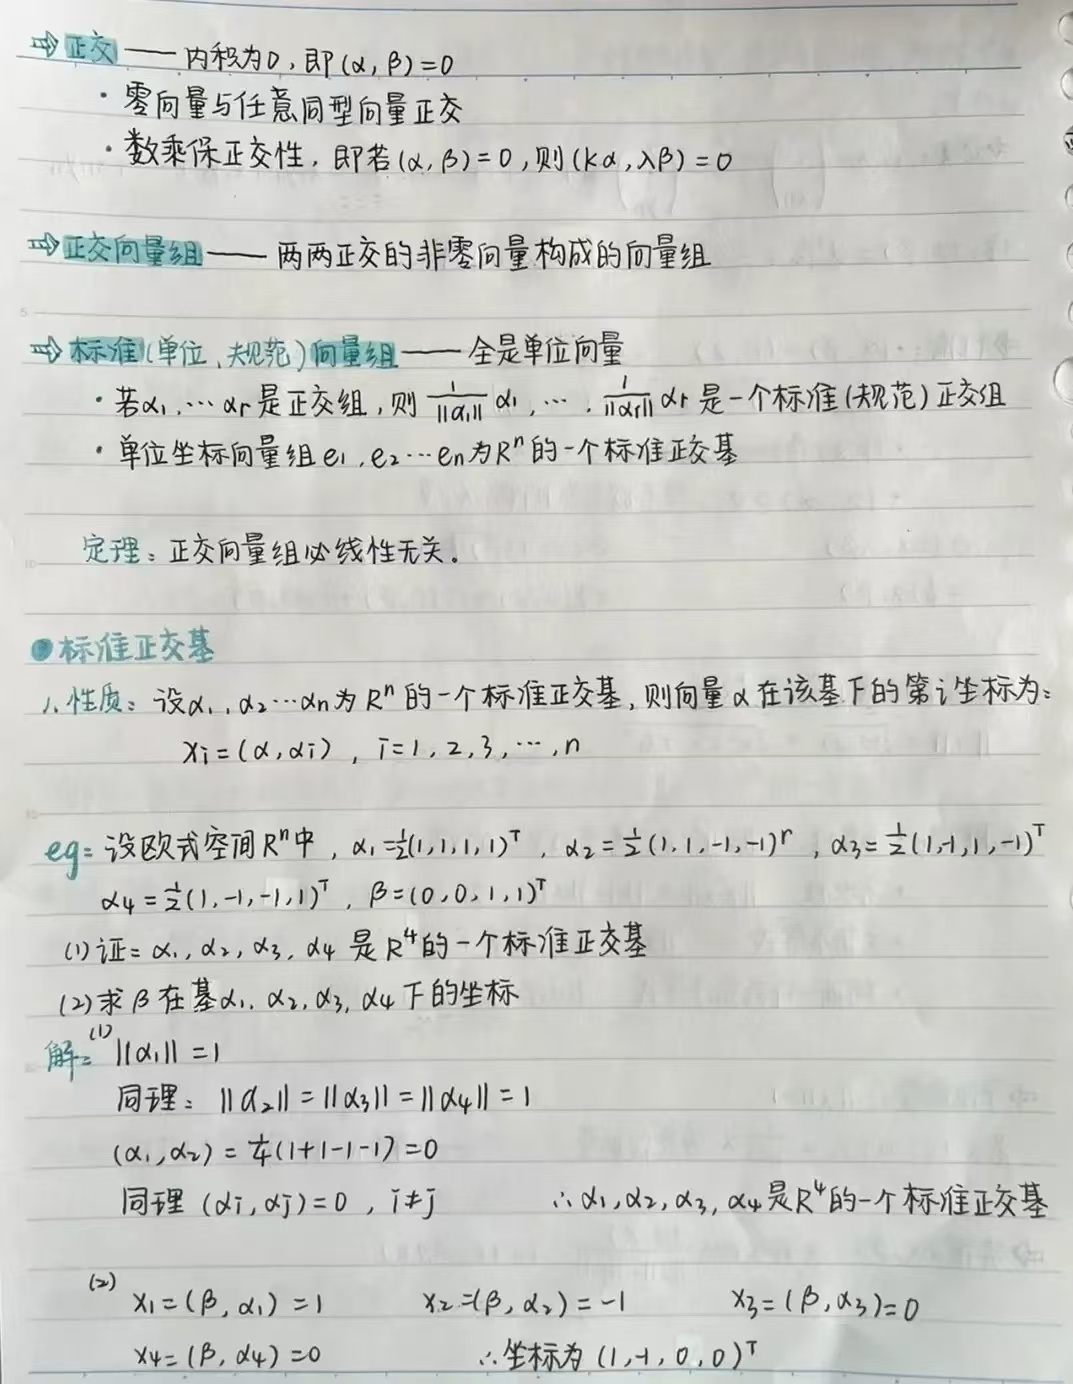 ⇒ 正交 —— 内积为0, 即(α, β)=0
· 零向量与任意同型向量正交
· 数乘保正交性, 即若(α, β)=0, 则(kα, λβ)=0
⇒ 正交向量组 —— 两两正交的非零向量构成的向量组
⇒ 标准(单位、规范)向量组 —— 全是单位向量
· 若α₁, … αr是正交组, 则 1/||α₁|| α₁, …, 1/||αr|| αr 是一个标准(规范)正交组
· 单位坐标向量组e₁, e₂…en为Rⁿ的一个标准正交基
定理: 正交向量组必线性无关.
●标准正交基
1. 性质: 设α₁, α₂…αn为Rⁿ的一个标准正交基, 则向量α在该基下的第i坐标为:
xi=(α, αi), i=1, 2, 3, …, n
eg: 设欧式空间Rⁿ中, α₁=½(1,1,1,1)ᵀ, α₂=½(1,1,-1,-1)ᵀ, α₃=½(1,-1,1,-1)ᵀ
α₄=½(1,-1,-1,1)ᵀ, β=(0,0,1,1)ᵀ
(1)证: α₁, α₂, α₃, α₄ 是R⁴的一个标准正交基
(2)求β在基α₁, α₂, α₃, α₄下的坐标
解: (1) ||α₁||=1
同理: ||α₂||=||α₃||=||α₄||=1
(α₁, α₂)=¼(1+1-1-1)=0
同理 (αi, αj)=0, i≠j ∴α₁, α₂, α₃, α₄是R⁴的一个标准正交基
(2) x₁=(β, α₁)=1 x₂=(β, α₂)=-1 x₃=(β, α₃)=0
x₄=(β, α₄)=0 ∴坐标为(1,-1,0,0)ᵀ